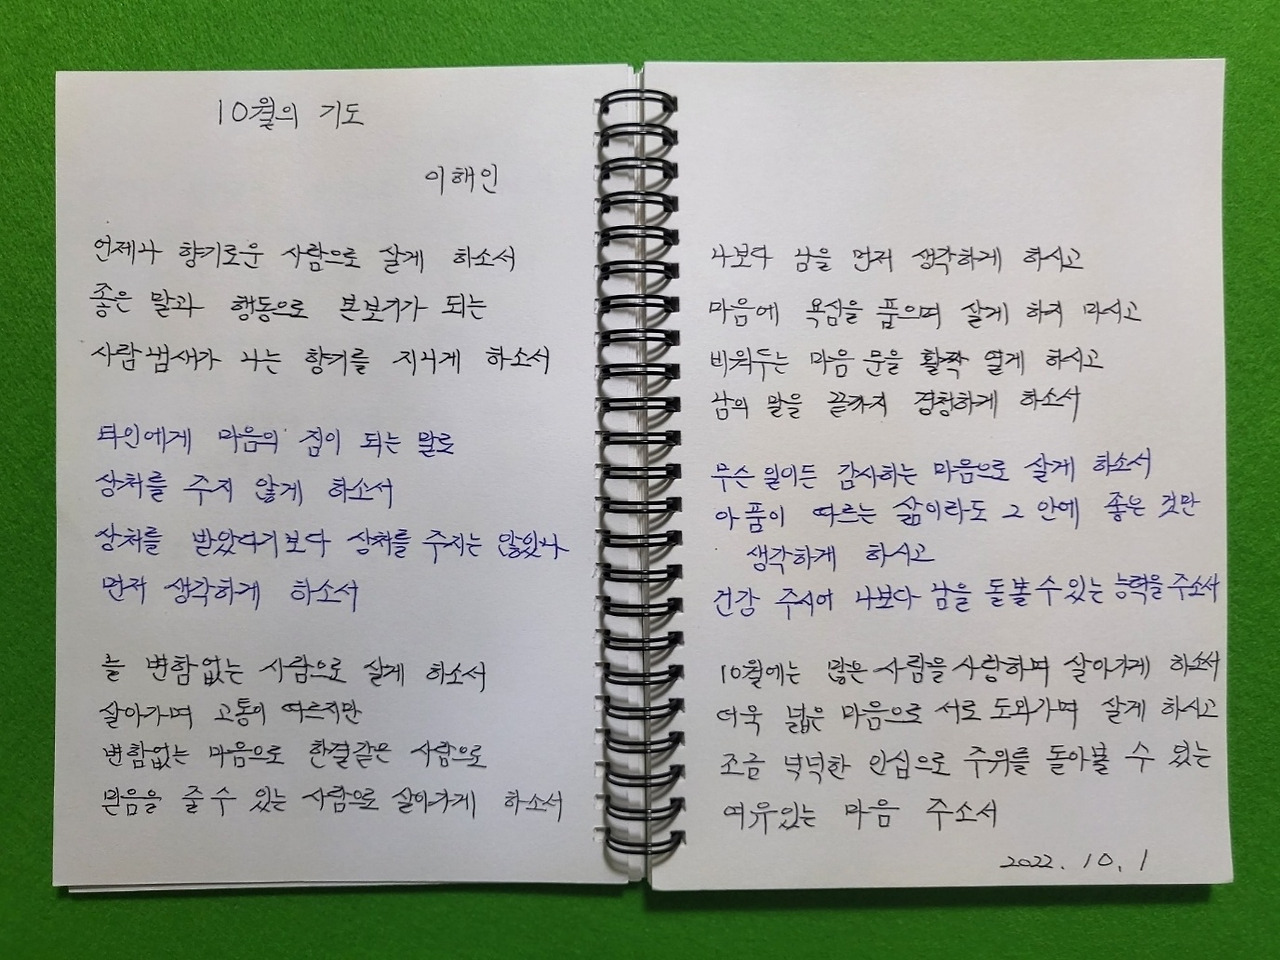 10월의 기도
이해인
언제나 향기로운 사람으로 살게 하소서
좋은 말과 행동으로 본보기가 되는
사람 냄새가 나는 향기를 지니게 하소서
타인에게 마음의 짐이 되는 말로
상처를 주지 않게 하소서
상처를 받았다기보다 상처를 주지는 않았나
먼저 생각하게 하소서
늘 변함없는 사람으로 살게 하소서
살아가며 고통이 따르지만
변함없는 마음으로 한결같은 사람으로
믿음을 줄 수 있는 사람으로 살아가게 하소서
나보다 남을 먼저 생각하게 하시고
마음에 욕심을 품으며 살게 하지 마시고
비워두는 마음 문을 활짝 열게 하시고
남의 말을 끝까지 경청하게 하소서
무슨 일이든 감사하는 마음으로 살게 하소서
아픔이 따르는 삶이라도 그 안에 좋은 것만
생각하게 하시고
건강 주시어 나보다 남을 돌볼 수 있는 능력을 주소서
10월에는 많은 사람을 사랑하며 살아가게 하소서
더욱 넓은 마음으로 서로 도와가며 살게 하시고
조금 넉넉한 인심으로 주위를 돌아볼 수 있는
여유있는 마음 주소서
2022. 10. 1